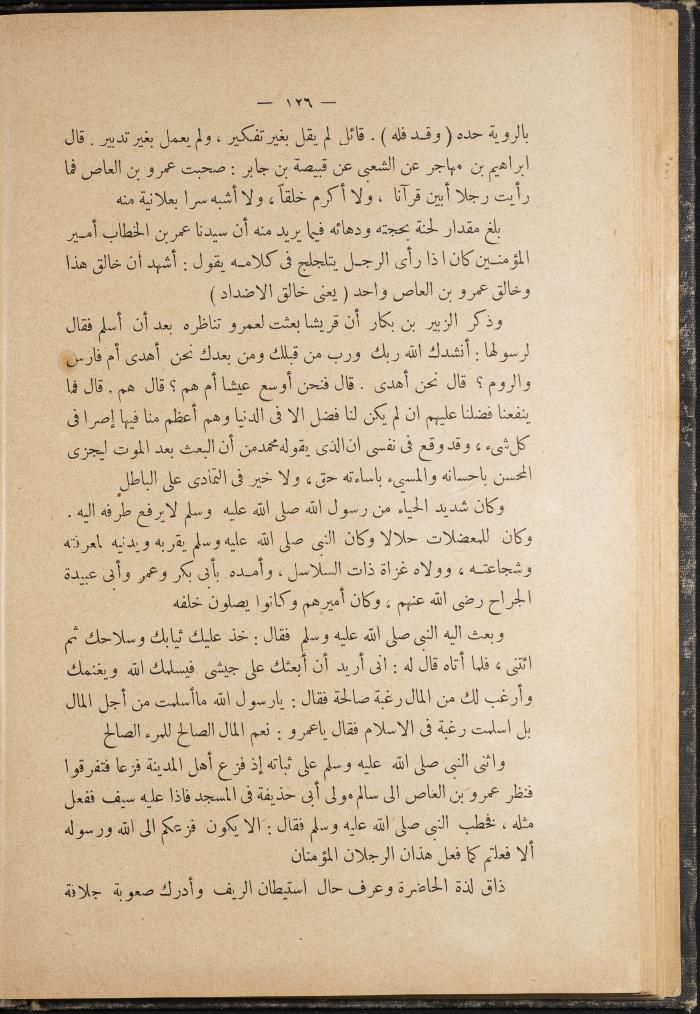 — ١٢٦ —
بالروية حده ( وقد فله ) . قائل لم يقل بغير تفكير ، ولم يعمل بغير تدبير . قال
ابراهيم بن مهاجر عن الشعبى عن قبيصة بن جابر : صحبت عمرو بن العاص فما
رأيت رجلا أبين قرآنا ، ولا أكرم خلقاً ، ولا أشبه سرا بعلانية منه
بلغ مقدار لحنة بحجته ودهائه فيما يريد منه أن سيدنا عمر بن الخطاب أمير
المؤمنين كان اذا رأى الرجل يتلجلج فى كلامه يقول : أشهد أن خالق هذا
وخالق عمرو بن العاص واحد ( يعنى خالق الاضداد )
وذكر الزبير بن بكار أن قريشا بعثت لعمرو تناظره بعد أن أسلم فقال
لرسولها : أنشدك الله ربك ورب من قبلك ومن بعدك نحن أهدى أم فارس
والروم ؟ قال نحن أهدى . قال فنحن أوسع عيشا أم هم ؟ قال هم . قال فما
ينفعنا فضلنا عليهم ان لم يكن لنا فضل الا فى الدنيا وهم أعظم منا فيها إصرا فى
كل شىء ، وقد وقع فى نفسى ان الذى يقوله محمد من أن البعث بعد الموت ليجزى
المحسن باحسانه والمسىء باساءته حق ، ولا خير فى التمادى على الباطل
وكان شديد الحياء من رسول الله صلى الله عليه وسلم لا يرفع طرفه اليه .
وكان للمعضلات حلالا وكان النبى صلى الله عليه وسلم يقربه ويدنيه لمعرفته
وشجاعته ، وولاه غزاة ذات السلاسل ، وأمده بأبى بكر وعمر وأبى عبيدة
الجراح رضى الله عنهم ، وكان أميرهم وكانوا يصلون خلفه
وبعث اليه النبى صلى الله عليه وسلم فقال : خذ عليك ثيابك وسلاحك ثم
ائتنى ، فلما أتاه قال له : انى أريد أن أبعثك على جيشى فيسلمك الله ويغنمك
وأرغب لك من المال رغبة صالحة فقال : يارسول الله ماأسلمت من أجل المال
بل اسلمت رغبة فى الاسلام فقال ياعمرو : نعم المال الصالح للمرء الصالح
واثنى النبى صلى الله عليه وسلم على ثباته إذ فزع أهل المدينة فزعا فتفرقوا
فنظر عمرو بن العاص الى سالم مولى أبى حذيفة فى المسجد فاذا عليه سيف ففعل
مثله ، فخطب النبى صلى الله عليه وسلم فقال : ألا يكون فزعكم الى الله ورسوله
ألا فعلتم كما فعل هذان الرجلان المؤمنان
ذاق لذة الحاضرة وعرف حال استيطان الريف وأدرك صعوبة جلافة